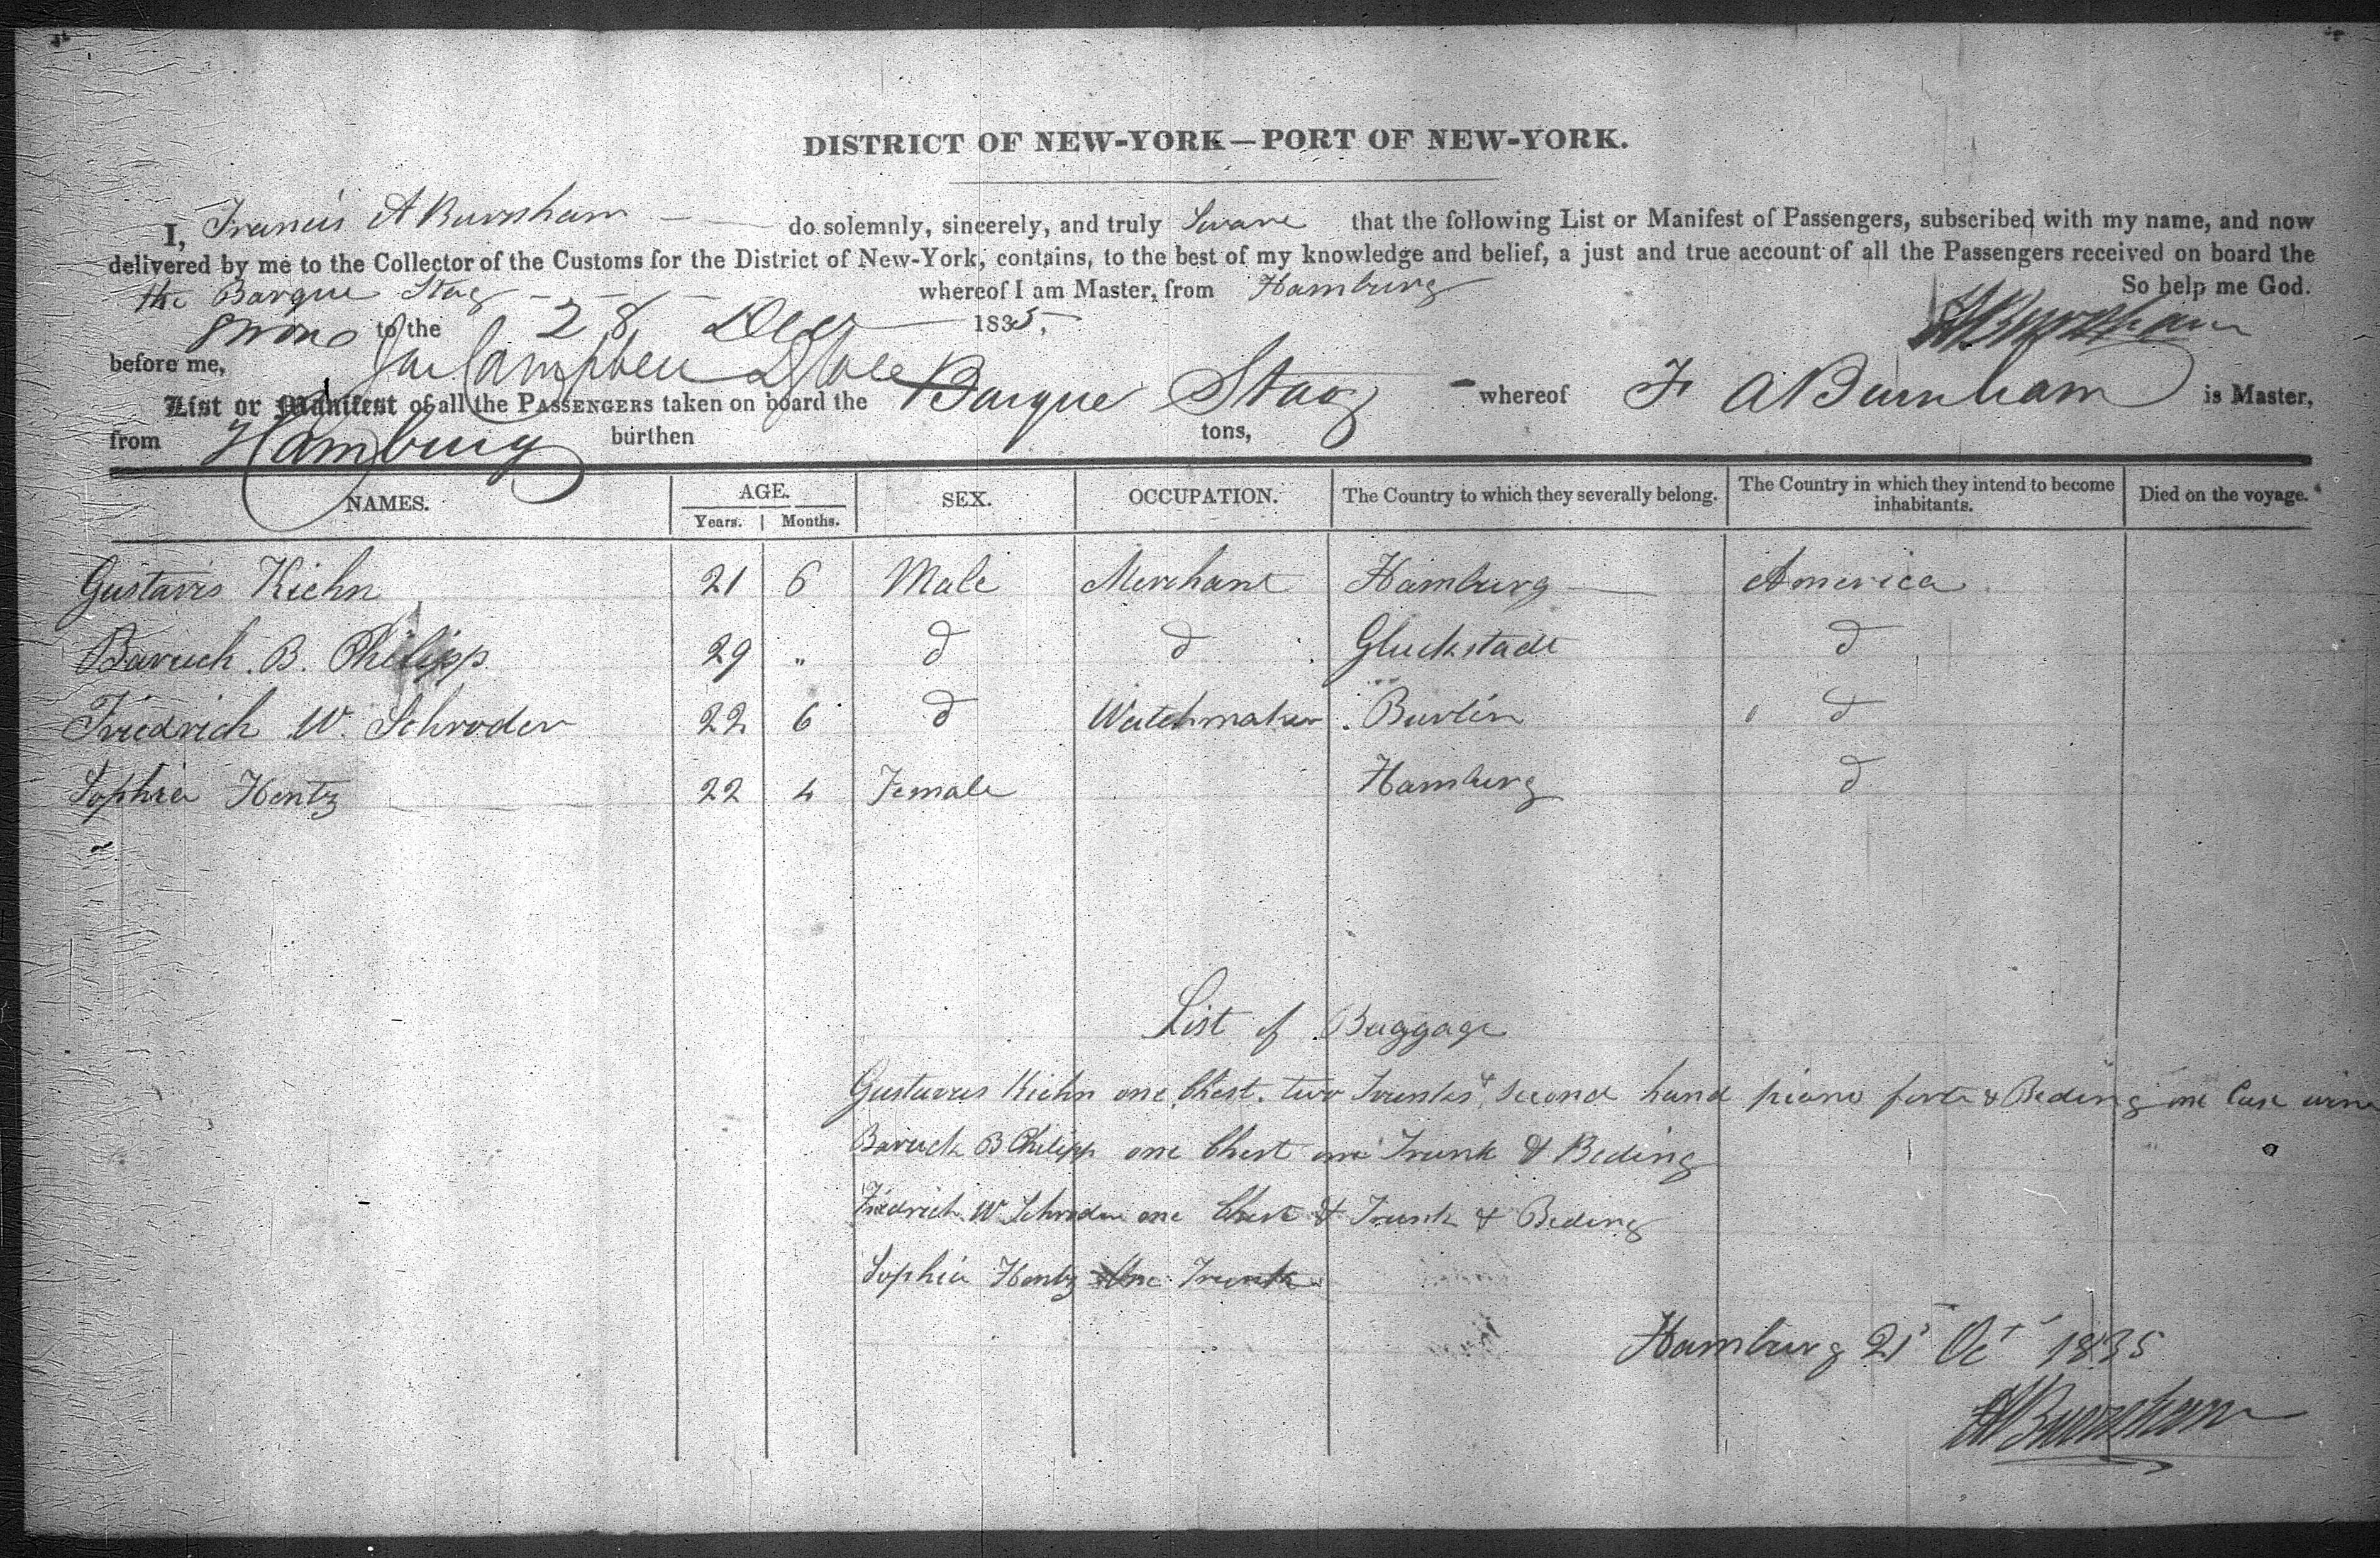 DISTRICT OF NEW-YORK—PORT OF NEW-YORK.
I, Francis A Burnham do solemnly, sincerely, and truly Sware that the following List or Manifest of Passengers, subscribed with my name, and now
delivered by me to the Collector of the Customs for the District of New-York, contains, to the best of my knowledge and belief, a just and true account of all the Passengers received on board the
the Barque Stag whereof I am Master, from Hamburg So help me God.
Sworn to the 28 Decr 1835, FABurnham
before me, Jas Campbell
List or Manifest of all the PASSENGERS taken on board the Barque Stag whereof F A Burnham is Master,
from Hamburg burthen tons,
NAMES. AGE. SEX. OCCUPATION. The Country to which they severally belong. The Country in which they intend to become inhabitants. Died on the voyage.
Years. Months.
Gustavis Kiehn 21 6 Male Merchant Hamburg America
Baruch. B. Philipp 29 „ d d Gluckstadt d
Friedrich W. Schroder 22 6 d Watchmaker Burlin d
Sophia Hentz 22 4 Female Hamburg d
List of Baggage
Gustavus Kiehn one Chest. two Trunks & second hand piano forte & Beding one Case wine
Baruch B Philipp one Chest one Trunk & Beding
Friedrich W Schroder one Chest & Trunk & Beding
Sophia Hentz One Trunk
Hamburg 21 Oct 1835
FABurnham